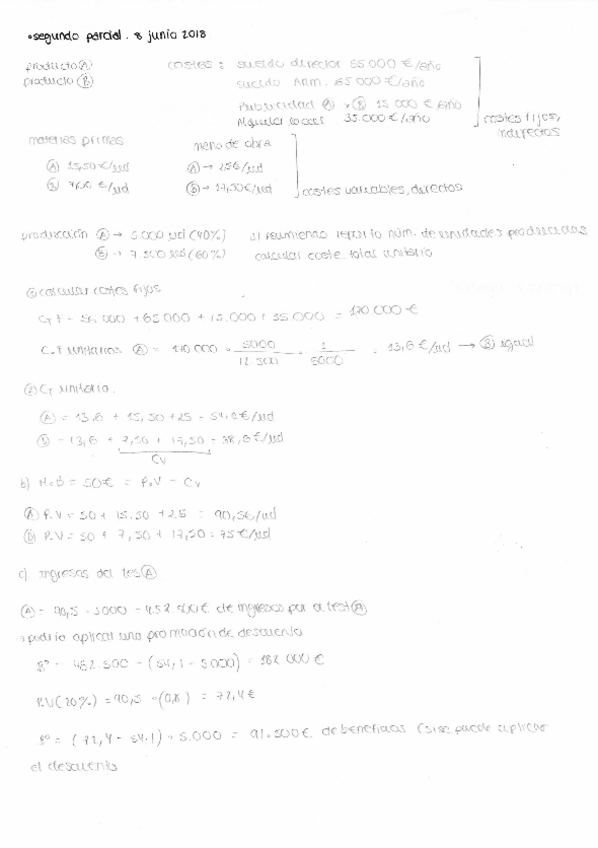 • segundo parcial. 8 junio 2018
producto Ⓐ costes: sueldo director 55.000 €/año
producto Ⓑ sueldo Adm. 65.000 €/año
Publicidad Ⓐ y Ⓑ 15.000 €/año
Alquiler local 35.000 €/año
costes fijos, indirectos
materias primas mano de obra
Ⓐ 15,50 €/ud Ⓐ → 25€/ud
Ⓑ 7,50 €/ud Ⓑ → 17,50€/ud
costes variables, directos
producción Ⓐ → 5.000 ud (40%) a) asumiendo reparto núm. de unidades producidas
Ⓑ → 7.500 ud (60%) calcular coste total unitario
① calcular costes fijos
CTf = 000 + 65.000 + 15.000 + 35.000 = 170.000 €
C.f unitarios Ⓐ = 170.000 · 5000 / 12.500 · 1 / 5000 = 13,6 €/ud → Ⓑ igual
② CT unitario.
Ⓐ = 13,6 + 15,50 + 25 = 54,1 €/ud
Ⓑ = 13,6 + 7,50 + 17,50 = 38,6 €/ud
Cv
b) M.B = 50€ = P.V - Cv
Ⓐ P.V = 50 + 15.50 + 25 = 90,5€/ud
Ⓑ P.V = 50 + 7,50 + 17,50 = 75 €/ud
c) ingresos del test Ⓐ
Ⓐ = 90,5 · 5000 = 452.500€ de ingresos por el test Ⓐ
podría aplicar una promoción de descuento
Bº = 452.500 - (54,1 · 5000) = 182.000 €
P.V (20%) = 90,5 · (0,8) = 72,4 €
Bº = (72,4 - 54,1) · 5.000 = 91.500€ de beneficios (si se puede aplicar
el descuento